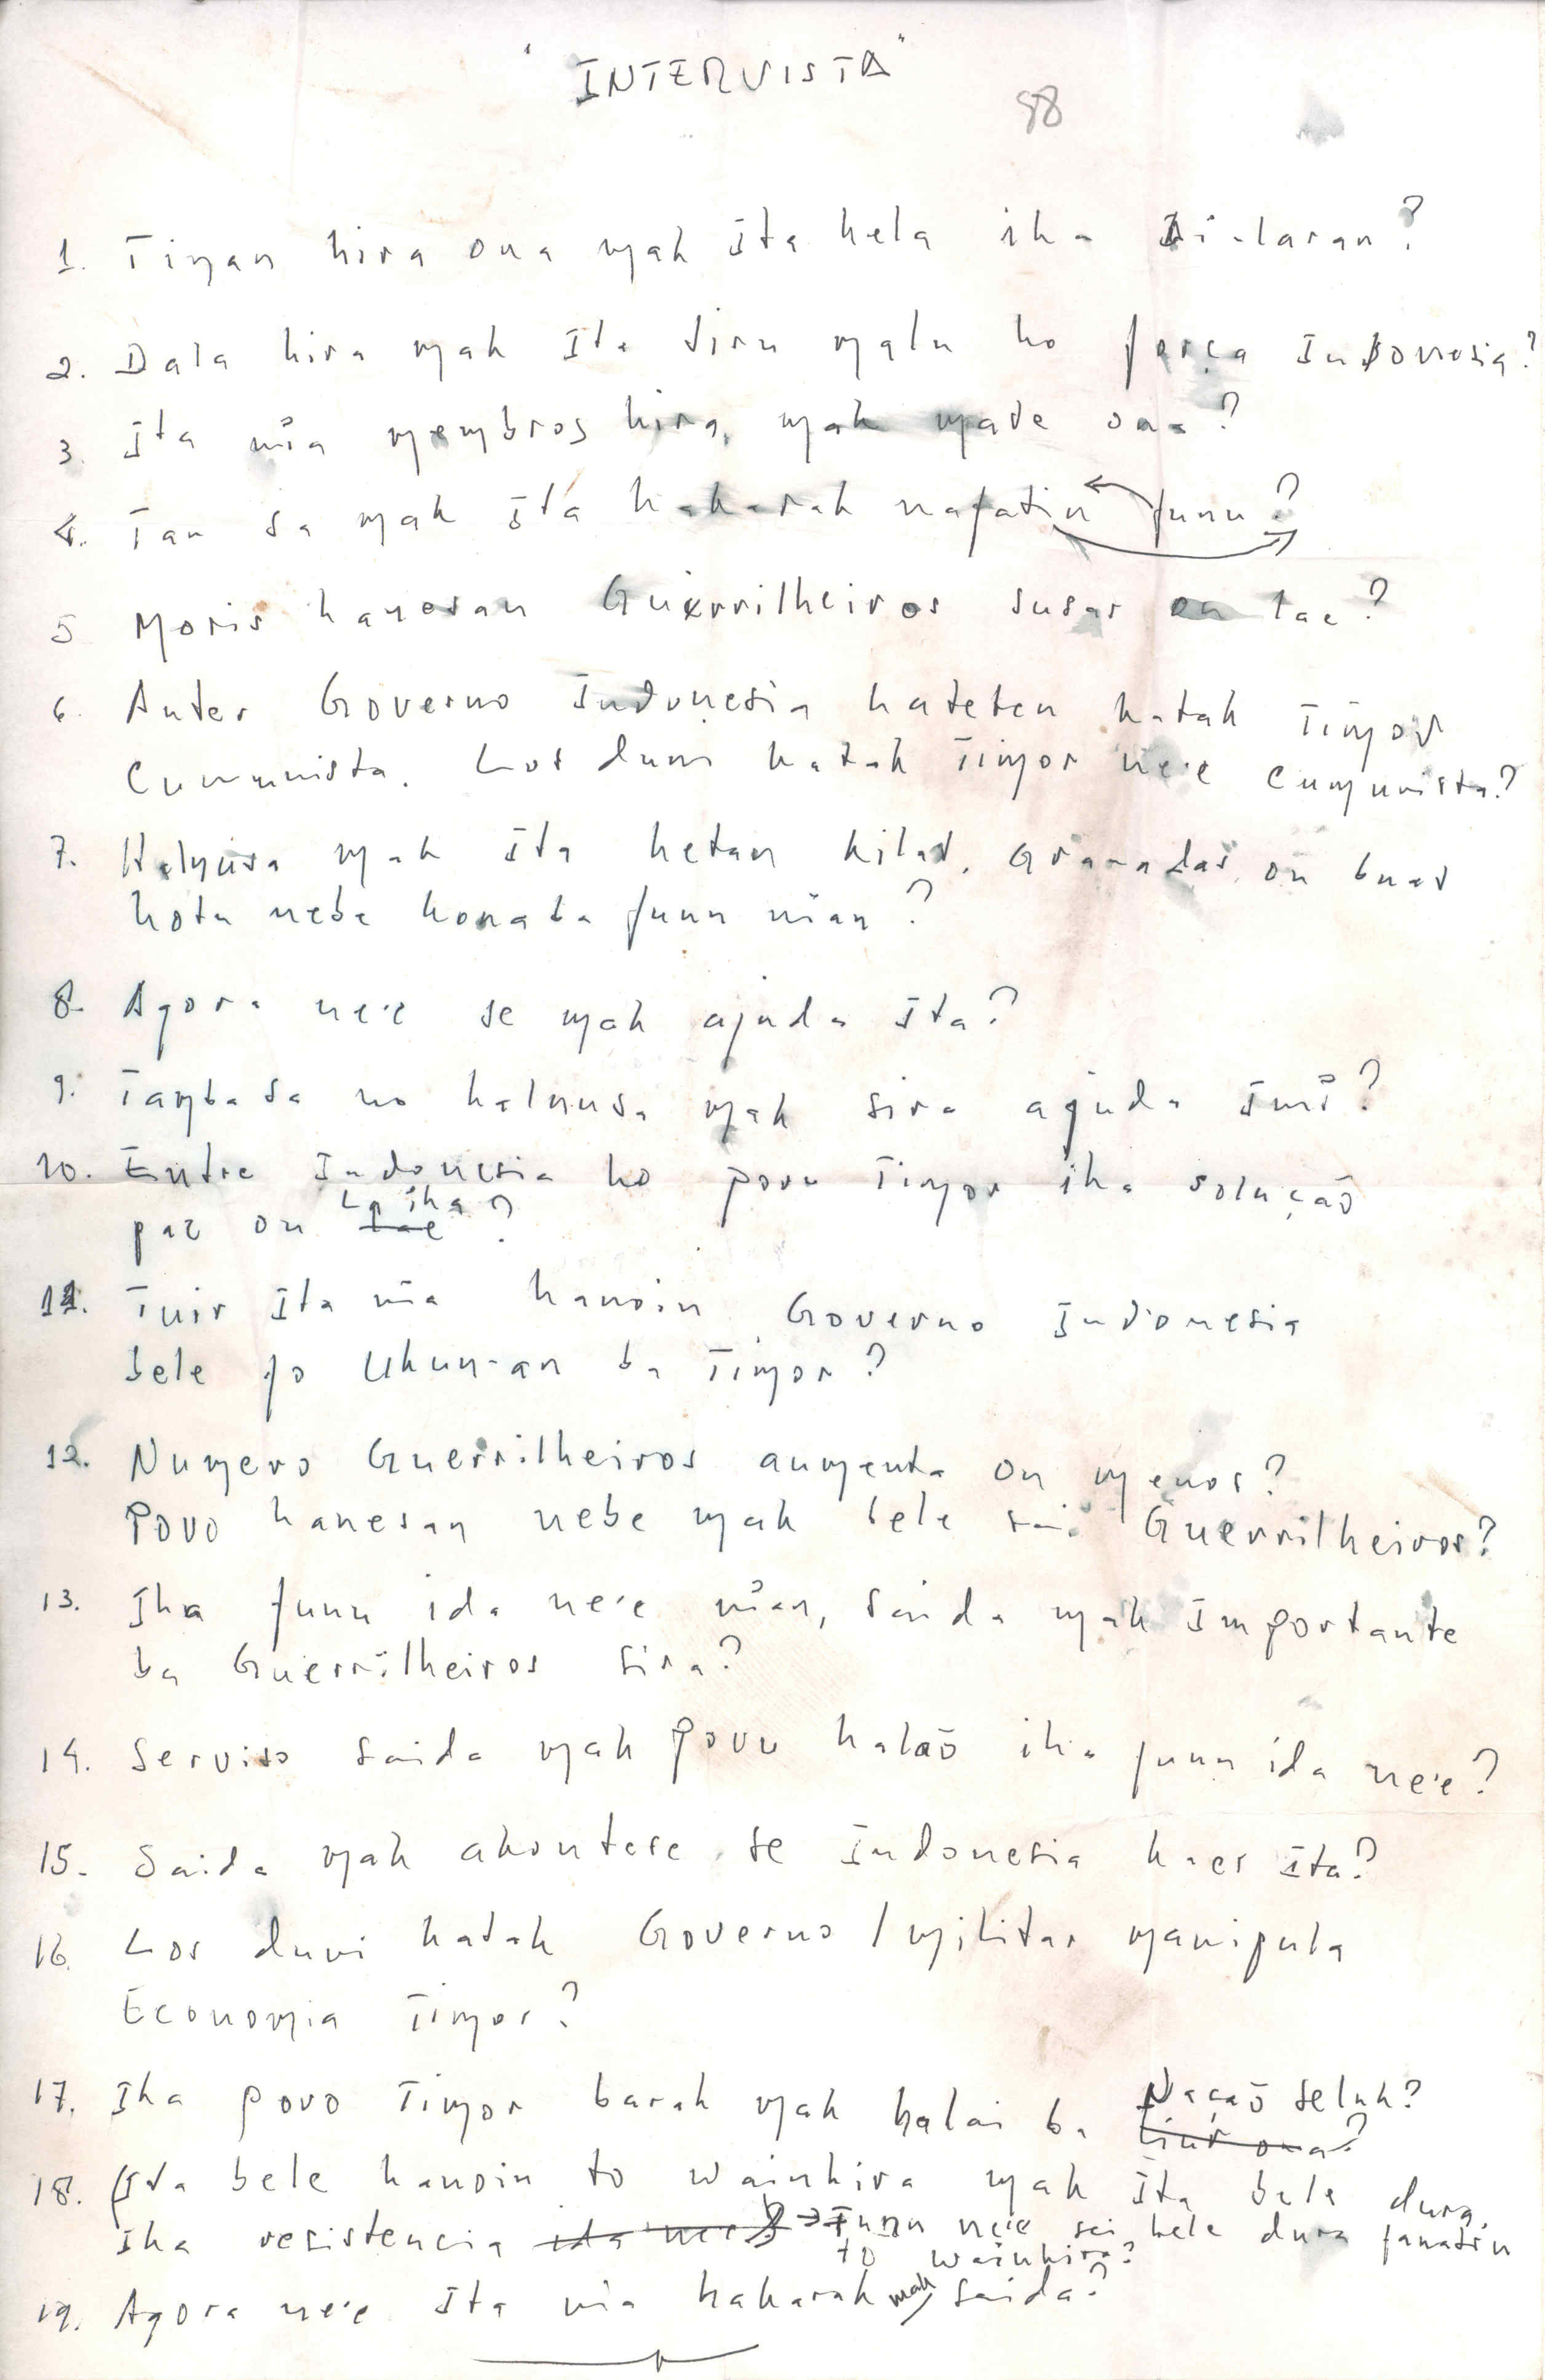 "INTERVISTA"
88
1. Tinan hira ona mak Ita hela iha Ai-laran?
2. Dala hira mak Ita tiru malu ho força Indonesia?
3. Ita nia membros hira, mak mate ona?
4. Tan sa mak Ita hakarak nafatin funu?
5 Moris hanesan Guerrilheiros susar ou lae?
6. Antes Governo Indonesia hateten katak Timor
Cumunista. Los duni katak Timor ne'e Cumunista?
7. Halnusa mak Ita hetan kilat, Granadas, ou buat
hotu nebe konaba funu nian?
8. Agora ne'e se mak ajuda Ita?
9. Tamba sa no halnusa mak sira ajuda Imi?
10. Entre Indonesia ho povu Timor iha solução
paz ou lae La iha?
11. Tuir Ita nia hanoin Governo Indonesia
bele fo Ukun-an ba Timor?
12. Numero Guerrilheiros aumenta ou menos?
Povo hanesan nebe mak bele sai Guerrilheiros?
13. Iha funu ida ne'e nian, saida mak Importante
ba Guerrilheiros sira?
14. Serviso saida mak povu halaõ iha funu ida ne'e?
15. Saida mak akontese, se Indonesia kaer Ita?
16. Los duni katak Governo / militar manipula
Economia Timor?
17. Iha povo Timor barak mak halai ba Nação seluk?
18. Ita bele hanoin to wainhira mak Ita bele dura,
Iha resistencia ida ne'e? → Funu ne'e sei bele dura fanatin
to wainhira?
19. Agora ne'e Ita nia hakarak mak saida?